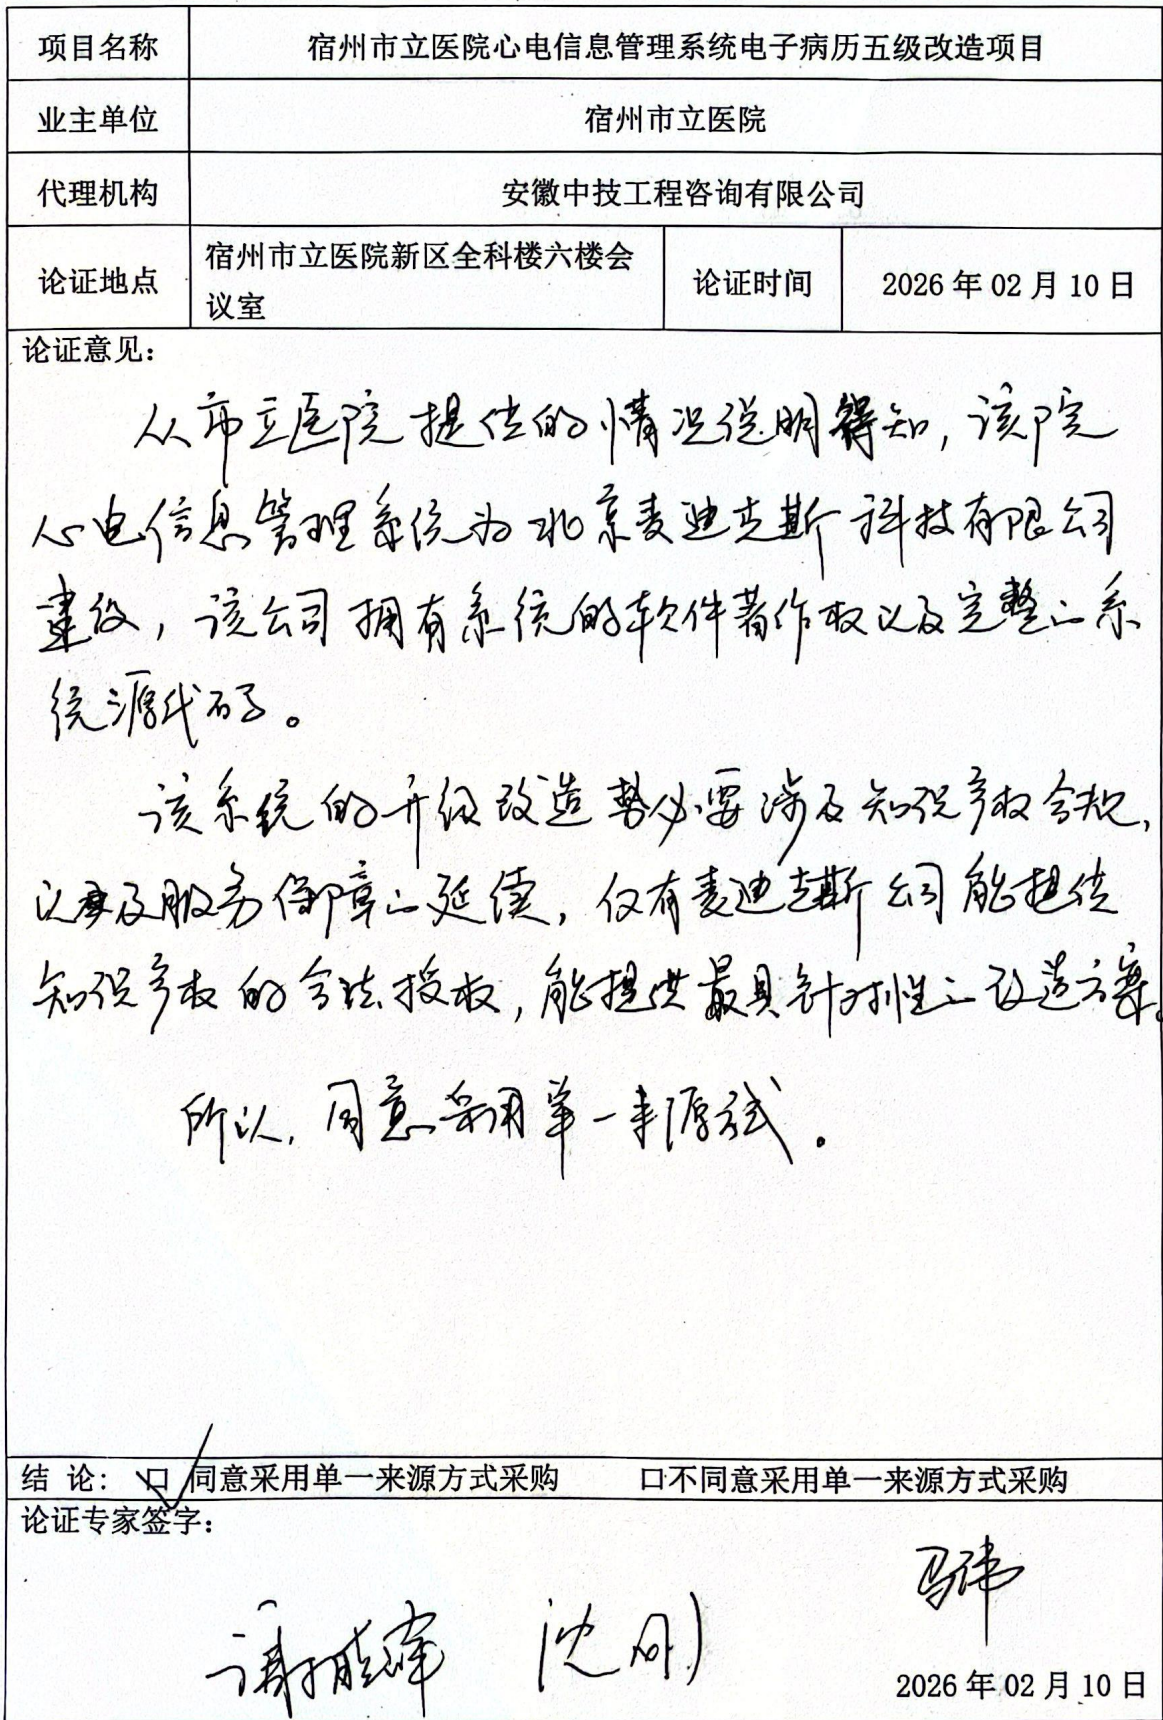 项目名称 宿州市立医院心电信息管理系统电子病历五级改造项目
业主单位 宿州市立医院
代理机构 安徽中技工程咨询有限公司
论证地点 宿州市立医院新区全科楼六楼会
议室
论证时间 2026年02月10日
论证意见：
从市立医院提供的情况说明得知，该院
心电信息管理系统为北京麦迪克斯科技有限公司
建设，该公司拥有系统的软件著作权以及完整的系
统源代码。
该系统的升级改造势必要涉及知识产权合规，
以及服务保障的延续，仅有麦迪克斯公司能提供
知识产权的合法授权，能提供最具针对性的改造方案。
所以，同意采用单一来源方式。
结 论：☑ 同意采用单一来源方式采购 口不同意采用单一来源方式采购
论证专家签字：
马伟
沈刚
2026年02月10日